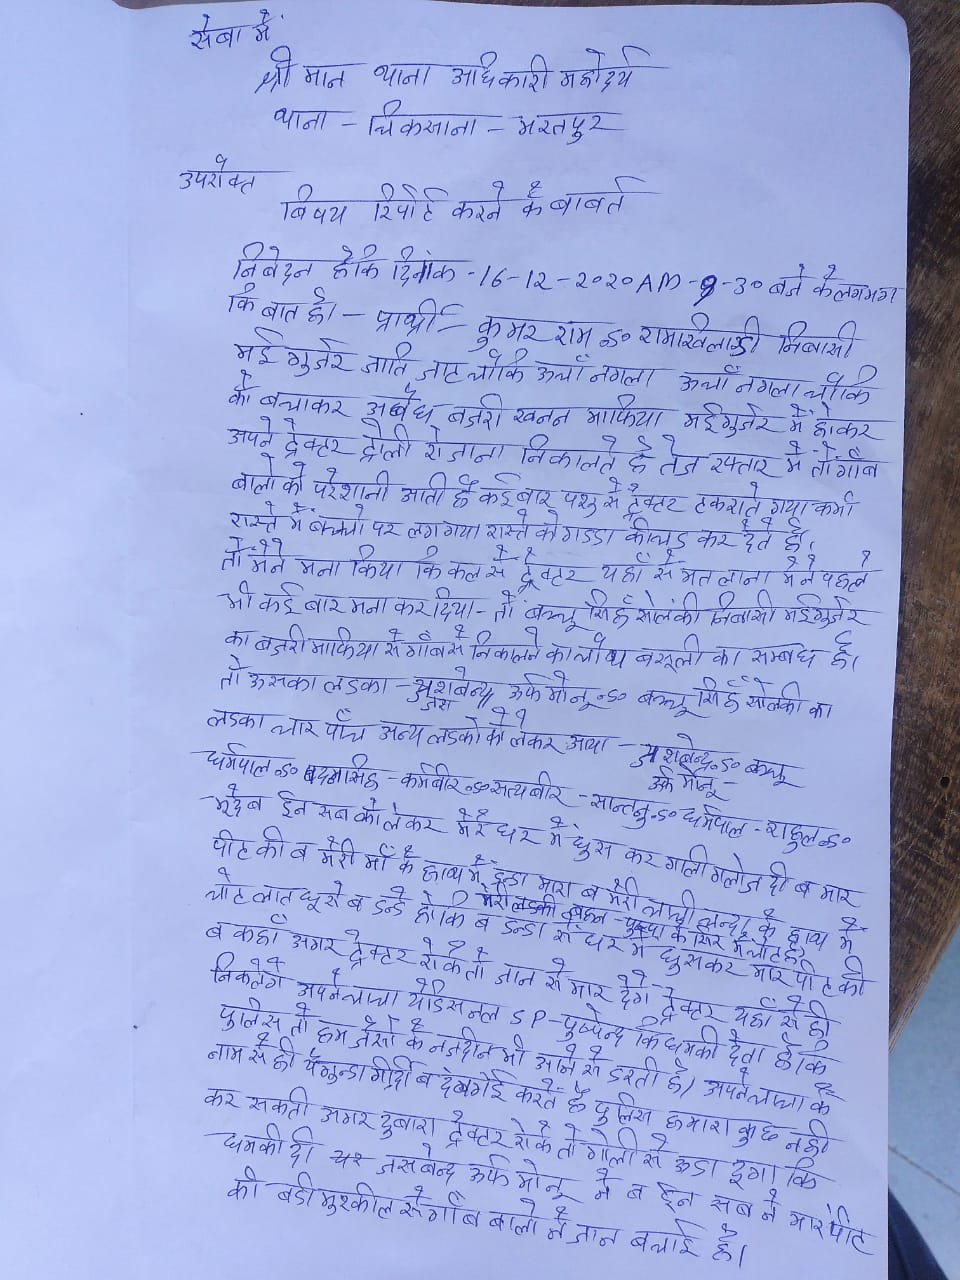 सेबा में
श्री मान थाना अधिकारी महोदय
थाना - चिकसाना - भरतपुर
उपरोक्त
बिषय रिपोर्ट करने के बाबत
निबेदन है कि दिनांक - 16-12-2020 AM - 9-30 बजे के लगभग
कि बात है। - प्रार्थी - कुमर राम s० रामखिलाडी निबासी
मई गुर्जर जाति जाट चौकि ऊचाँ नगला ऊचाँ नगला चौकि
को बचाकर अबैध बजरी खनन माफिया मई गुर्जर में होकर
अपने ट्रेक्टर ट्रोली रोजाना निकालते है तेज रफ्तार में तो गाँब
बालो को परेशानी आती है कई बार पशु से ट्रेक्टर टकराते गया कभी
रास्ते में बच्चो पर लग गया रास्ते को गडडा कीचड कर देते है।
तो मैने मना किया कि कल से ट्रेक्टर यहाँ से मत लाना मैने पहले
भी कई बार मना कर दिया - तो बच्चू सिंह सोलंकी निबासी मई गुर्जर
का बजरी माफिया से गाँब से निकालने का चौथ बसूली का सम्बध है।
तो ऊसका लडका - ऊर्फ मोनू s० बच्चू सिंह सोलंकी का
जस
लडका चार पाँच अन्य लडको को लेकर आया - s० बच्चू
ऊर्फ मोनू -
धर्मपाल s० पदमसिंह - कर्मबीर s० सत्यबीर - सान्तनु s० धर्मपाल - राहुल s०
ईन सब को लेकर मेरे घर में घुस कर गाली गलोज दी ब मार
पीट की ब मेरी माँ के हाथ में डन्डा मारा ब मेरी चाची के हाथ में
मेरी लडकी के सिर में चोट है
चोट लात घूसे ब डन्डे ब डन्डा से घर में घुसकर मारपीट की
ब कहाँ अगर ट्रेक्टर रोके तो जान से मार देंगे ट्रेक्टर यहाँ से ही
निकलेगे अपने चाचा ऐडिसनल SP - पुष्पेन्द्र कि धमकी देता है कि
पुलिस तो हम जैसो के नजदीन भी आने से डरती है। अपने चाचा के
नाम से ही ये गुन्डा गीर्दी ब करते है पुलिस हमारा कुछ नही
कर सकती अगर दुबारा ट्रेक्टर रोके तो गोली से ऊडा दूगा कि
धमकी दी जसबेन्द्र ऊर्फ मोनू ने ब ईन सब ने मारपीट
की बडी मुश्कील से गाँब बालो ने जान बचाई है।